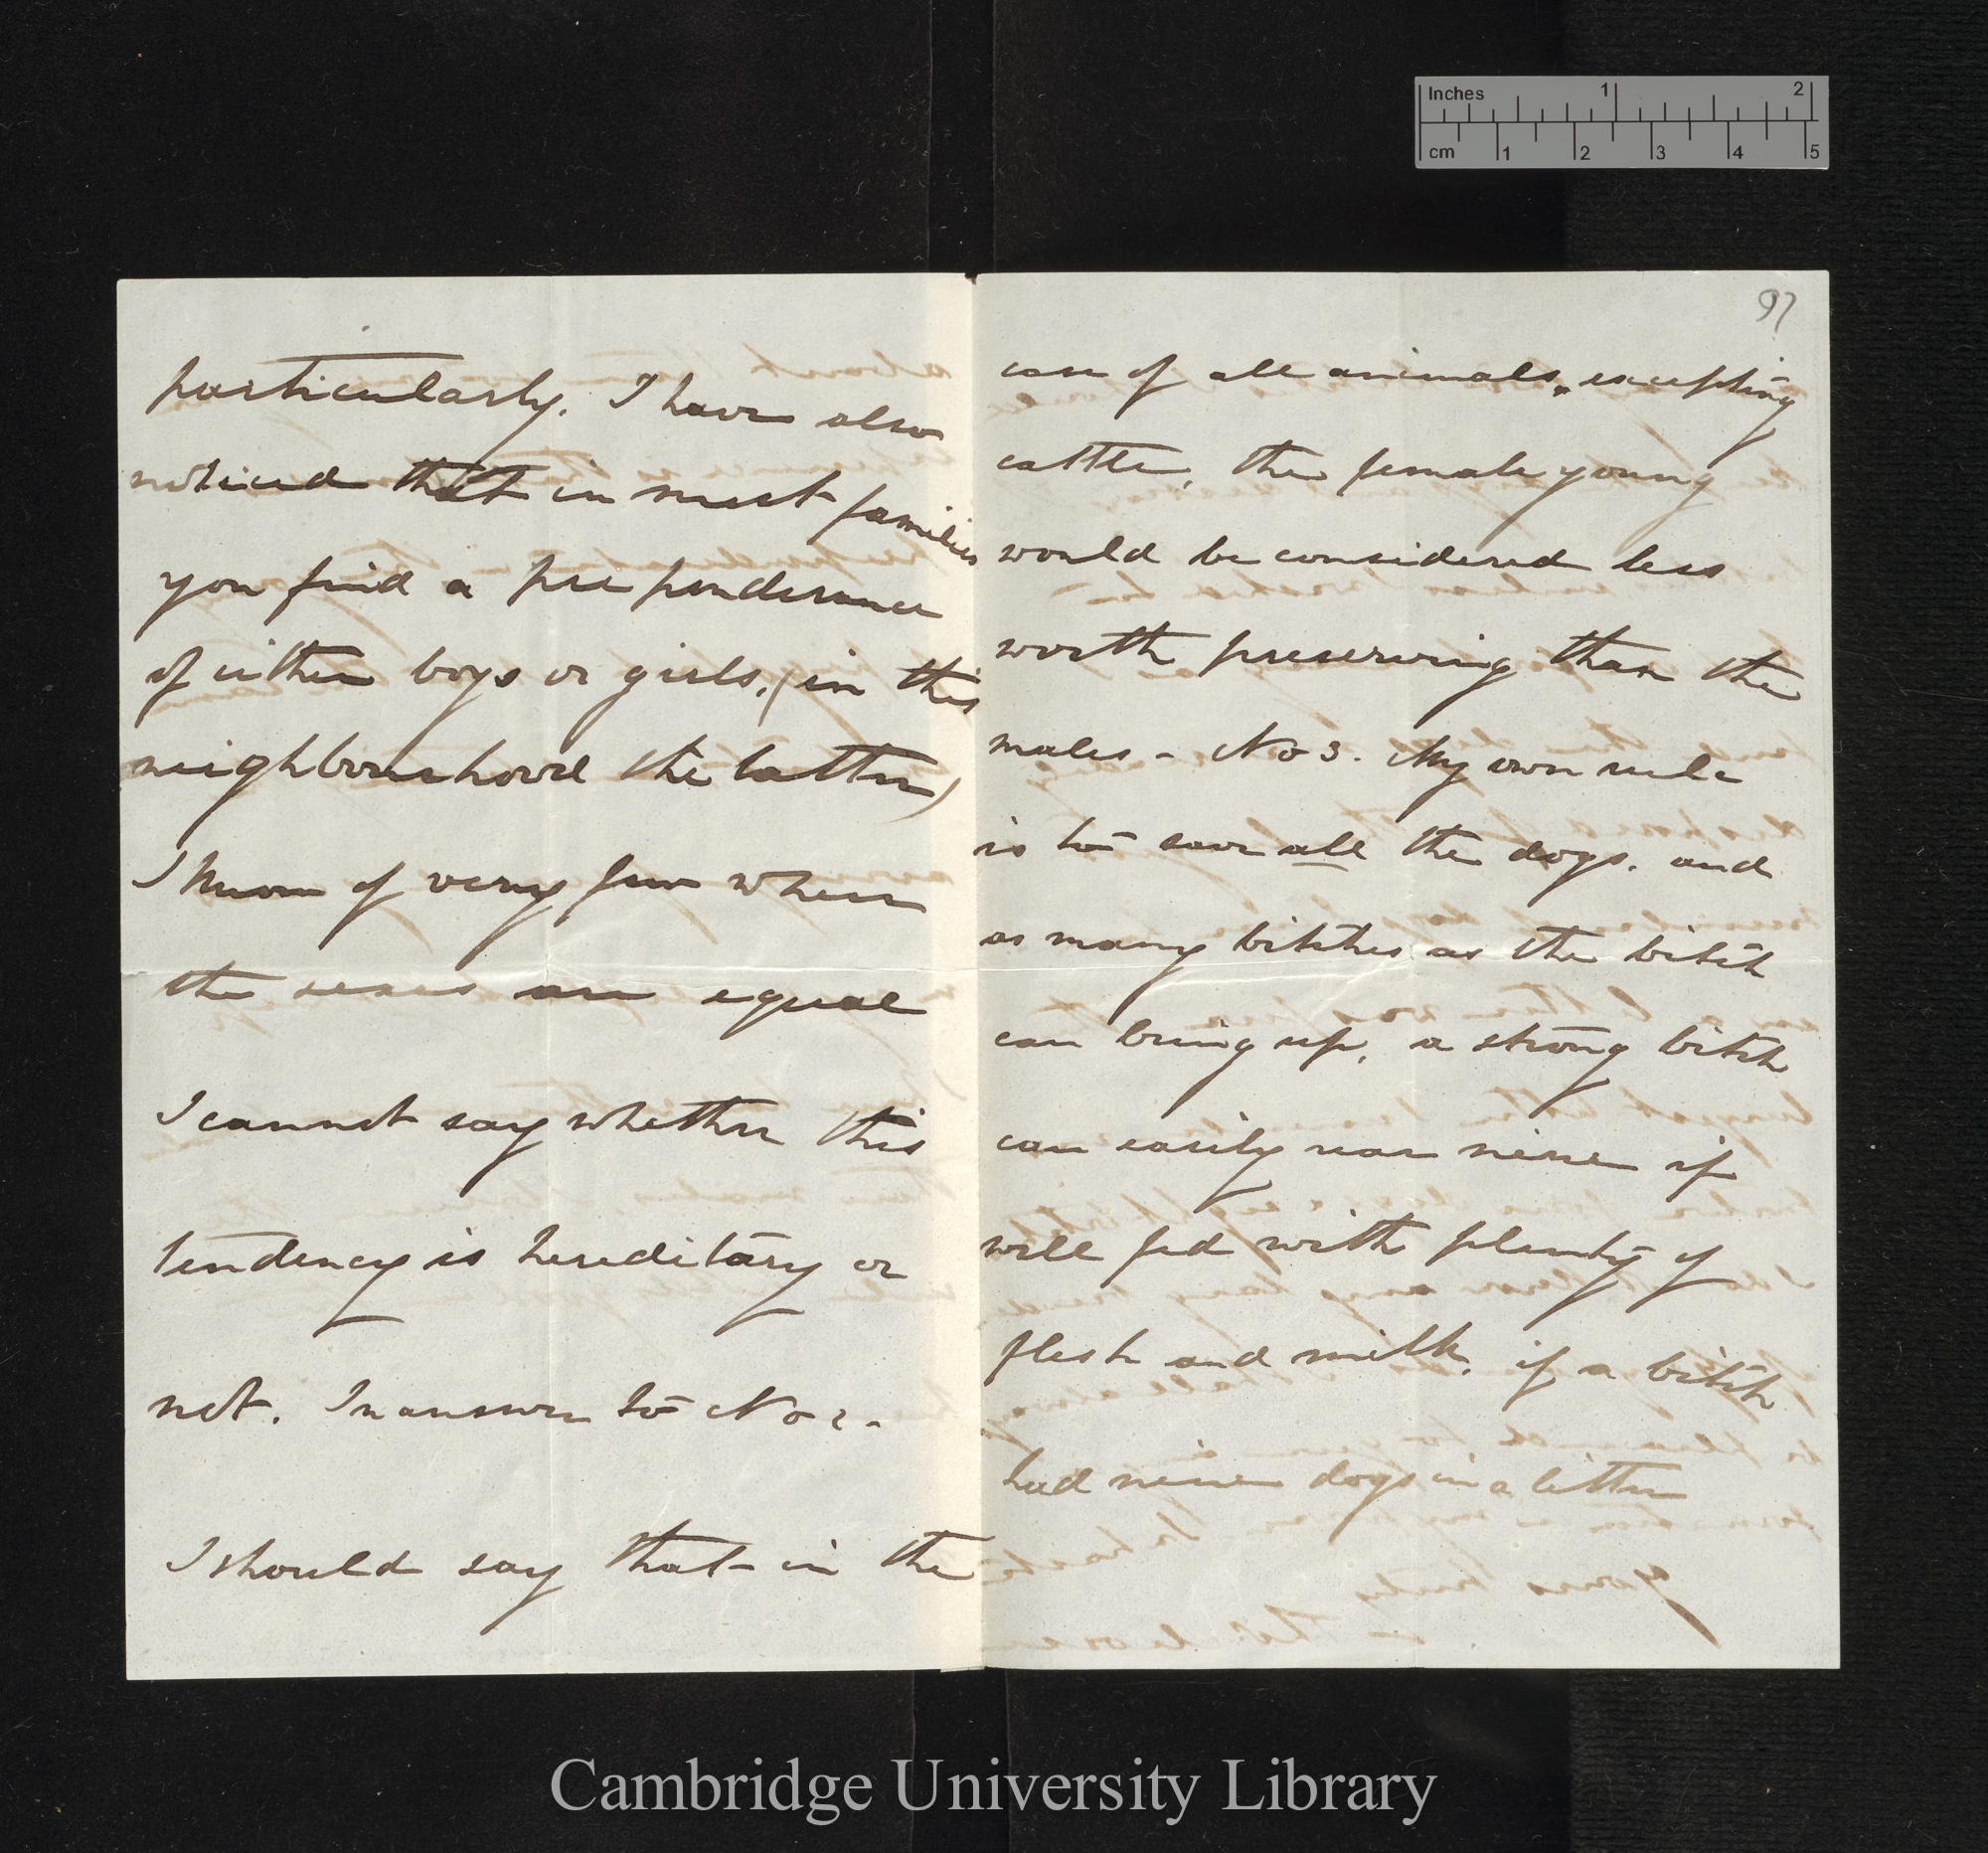 Inches 1 2
cm 1 2 3 4 5
particularly. I have also
noticed that in most families
you find a preponderance
of either boys or girls, (in this
neighbourhood the latter)
I know of very few where
the sexes are equal
I cannot say whether this
tendency is hereditary or
not. In answer to No 2.
I should say that in the
97
case of all animals, excepting
cattle, the female young
would be considered less
worth preserving than the
males - No 3. My own rule
is to save all the dogs. and
as many bitches as the bitch
can bring up, a strong bitch
can easily rear nine if
well fed with plenty of
flesh and milk. if a bitch
had nine dogs in a litter
Cambridge University Library